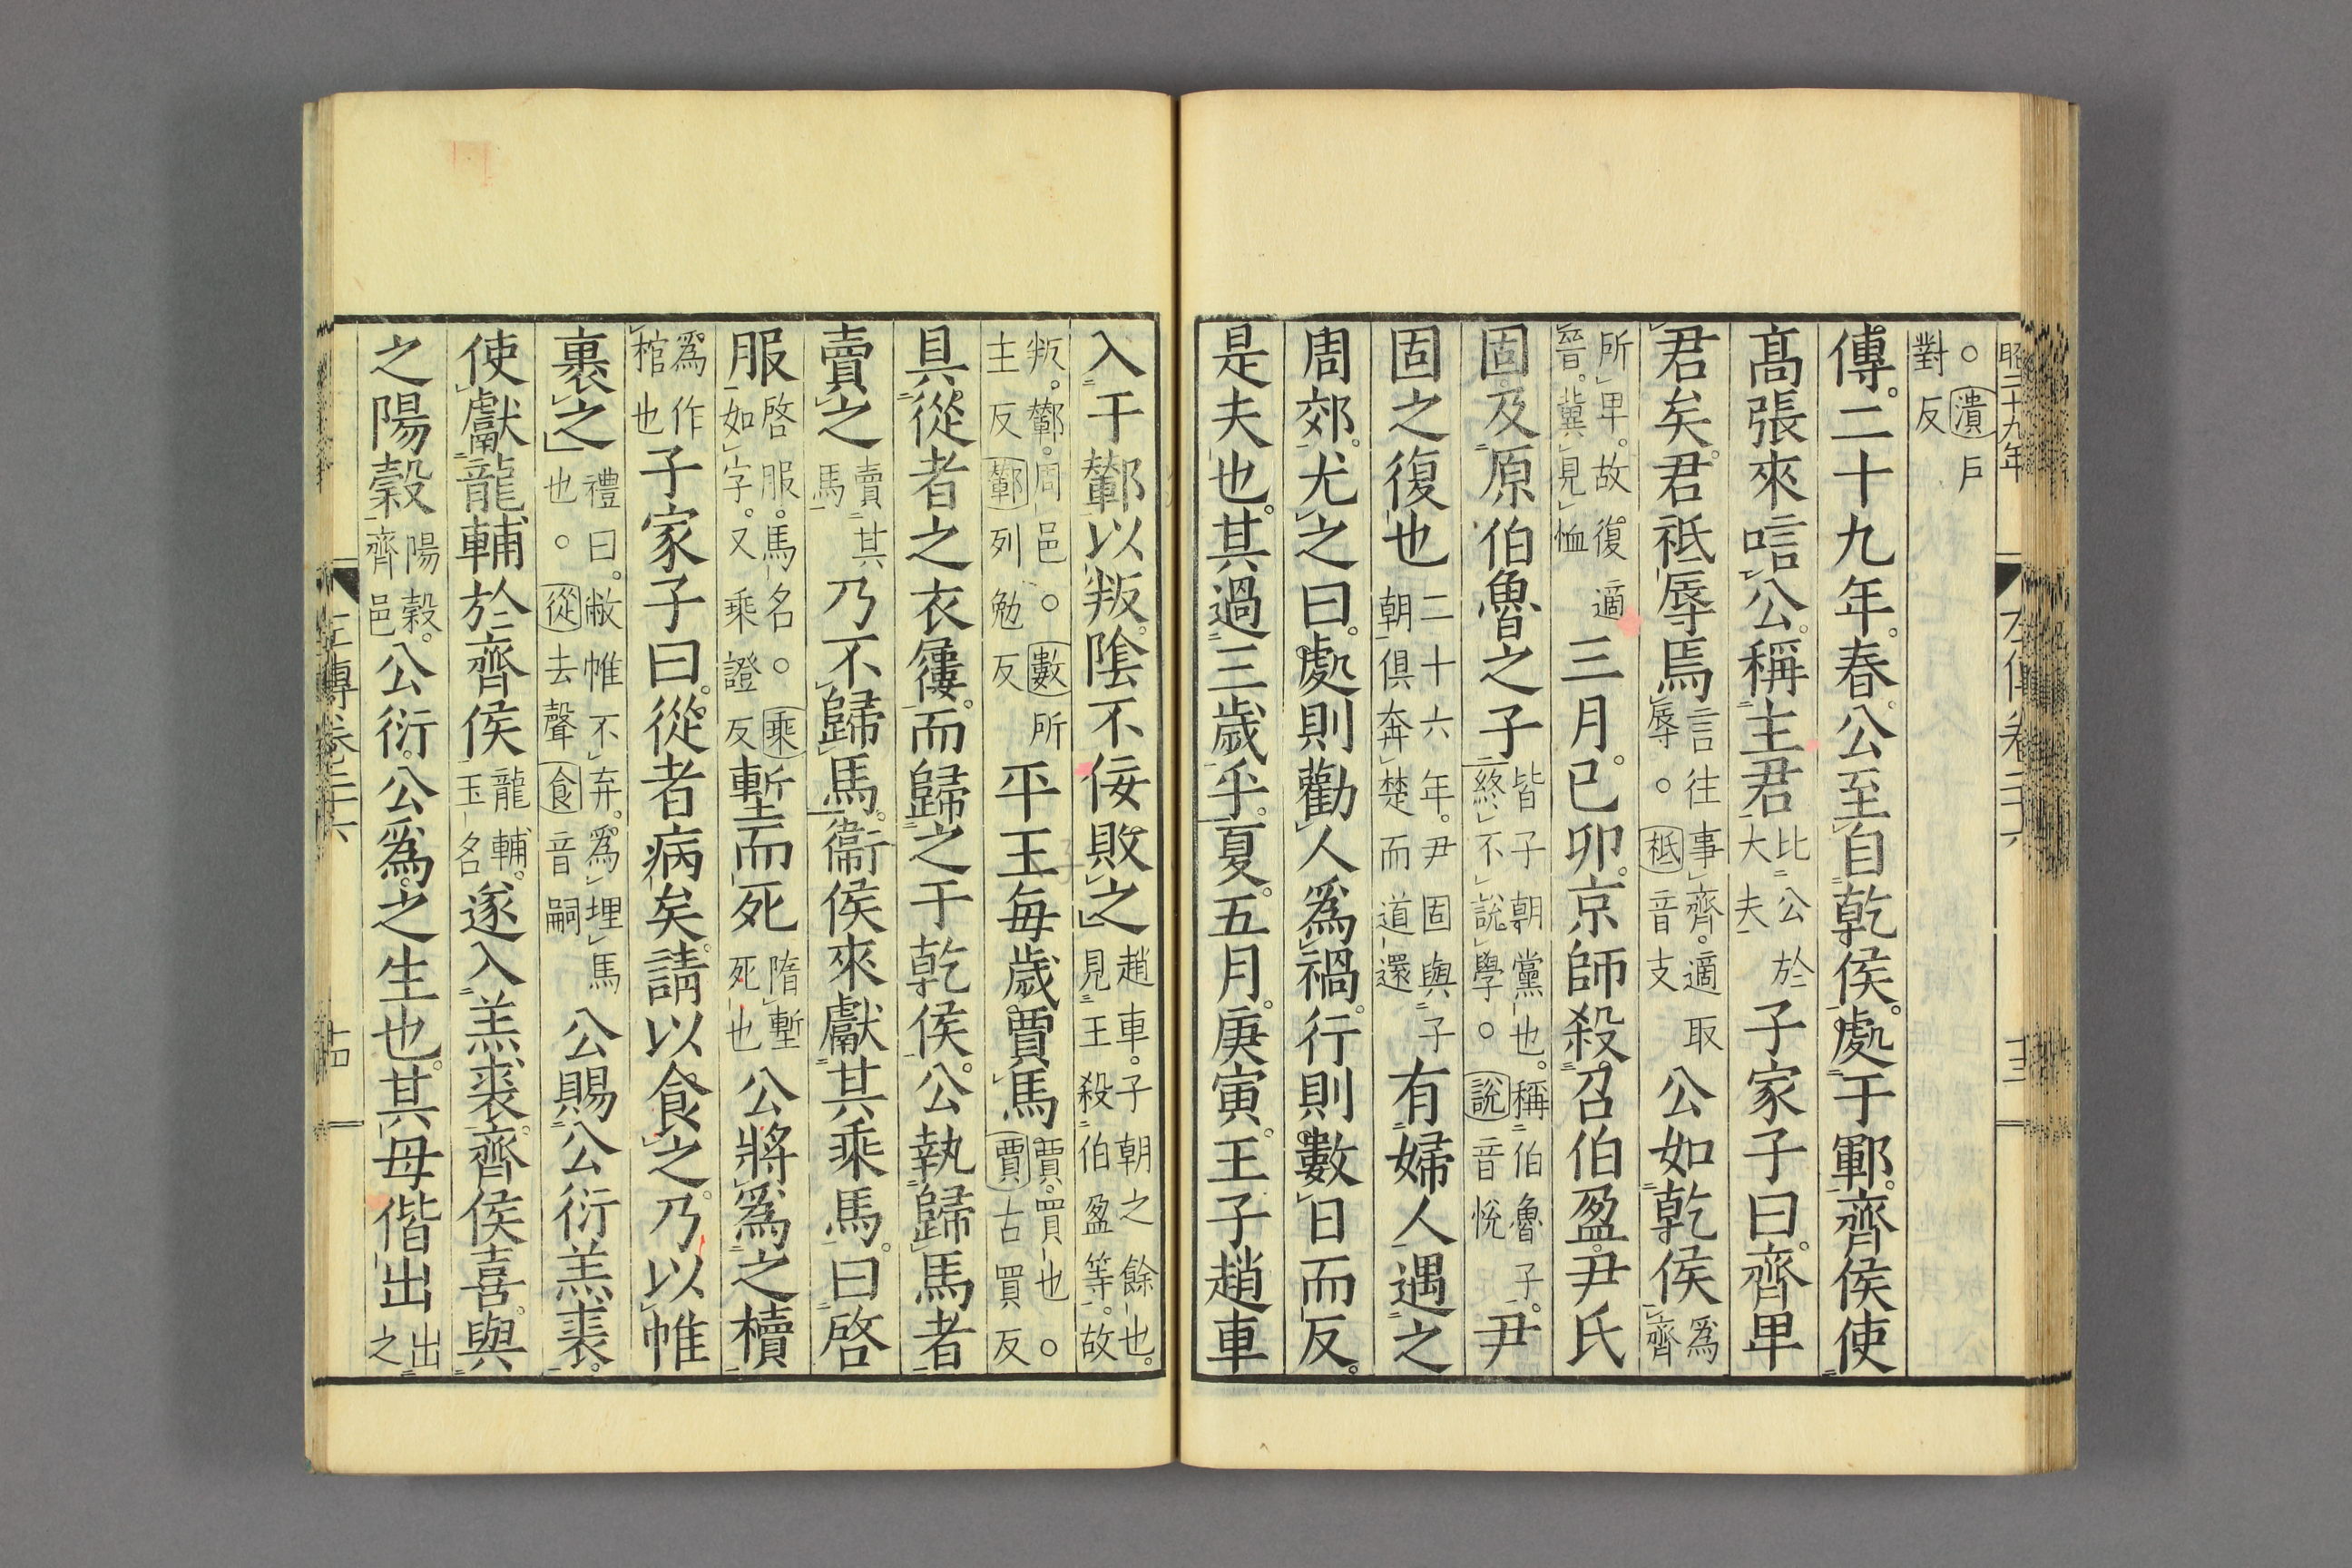 昭二十九年
○潰戶對反
傳二十九年春公至自乾侯處于鄆齊侯使
髙張來唁公稱主君比公於大夫子家子曰齊卑
君矣君祗辱焉言往事齊適取辱○祗音支公如乾侯爲齊
所卑故復適晉冀見恤三月己卯京師殺召伯盈尹氏
固及原伯魯之子皆子朝黨也稱伯魯子終不說學○說音悅尹
固之復也二十六年尹固與子朝俱奔楚而道還有婦人遇之
周郊尤之曰處則勸人爲禍行則數日而反
是夫也其過三歲乎夏五月庚寅王子趙車
入于鄻以叛隂不佞敗之趙車子朝之餘也見王殺伯盈等故
叛鄻周邑○數所主反鄻列勉反平王每歲賈馬賈買也○賈古買反
具從者之衣屨而歸之于乾侯公執歸馬者
賣之賣其馬乃不歸馬衞侯來獻其乘馬曰啓
服啓服馬名○乘如字又乘證反塹而死隋塹死也公將爲之櫝
爲作棺也子家子曰從者病矣請以食之乃以帷
裹之禮曰敝帷不弃爲埋馬也○從去聲食音嗣公賜公衍羔裘
使獻龍輔於齊侯龍輔玉名遂入羔裘齊侯喜與
之陽穀陽穀齊邑公衍公爲之生也其母偕出出之
左傳卷二十六
十四